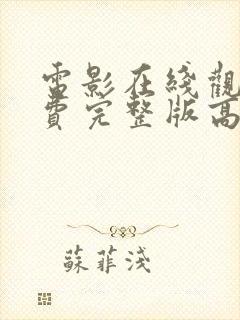 電影在綫觀
費完整版高
蘇菲淺